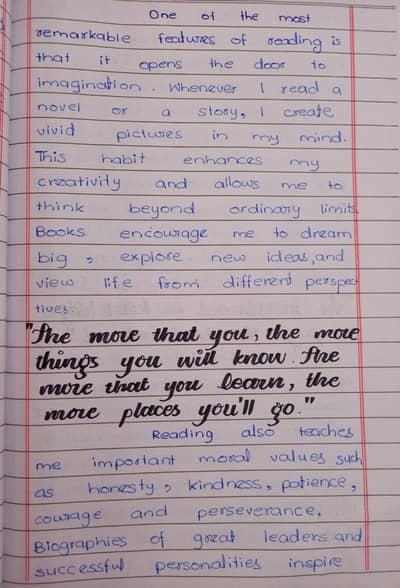 One of the most
remarkable features of reading is
that it opens the door to
imagination. Whenever I read a
novel or a story, I create
vivid pictures in my mind.
This habit enhances my
creativity and allows me to
think beyond ordinary limits.
Books encourage me to dream
big, explore new ideas, and
view life from different perspec-
tives.
"The more that you, the more
things you will know. The
more that you learn, the
more places you'll go."
Reading also teaches
me important moral values such
as honesty, kindness, patience,
courage and perseverance.
Biographies of great leaders and
successful personalities inspire